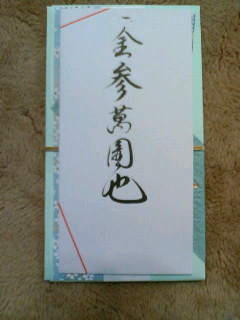 一金参萬圓也